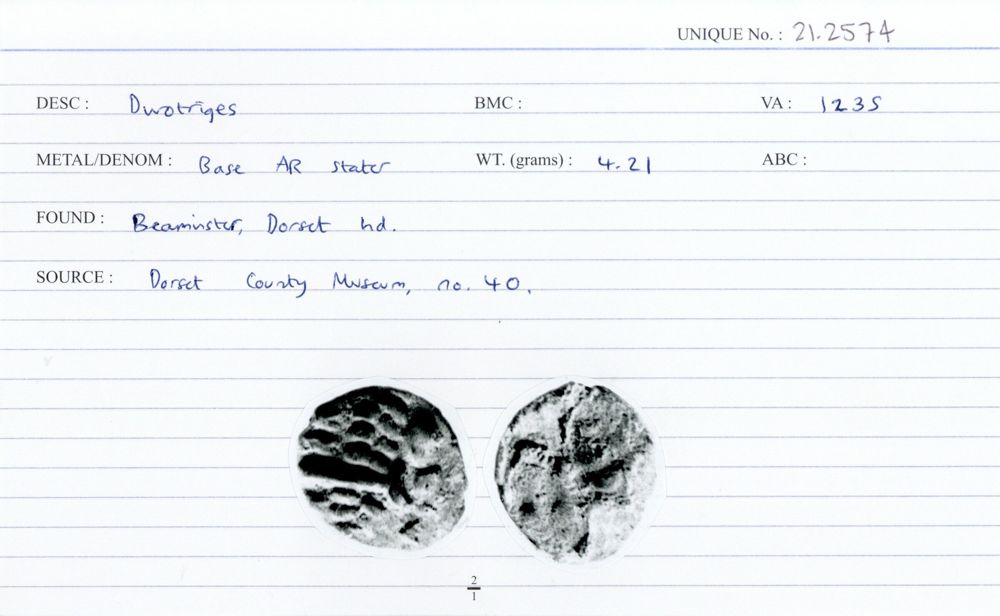 UNIQUE No. : 21.2574
DESC : Durotriges BMC : VA : 1235
METAL/DENOM : Base AR stater WT. (grams) : 4.21 ABC :
FOUND : Beaminster, Dorset hd.
SOURCE : Dorset County Museum, no. 40.
2
1